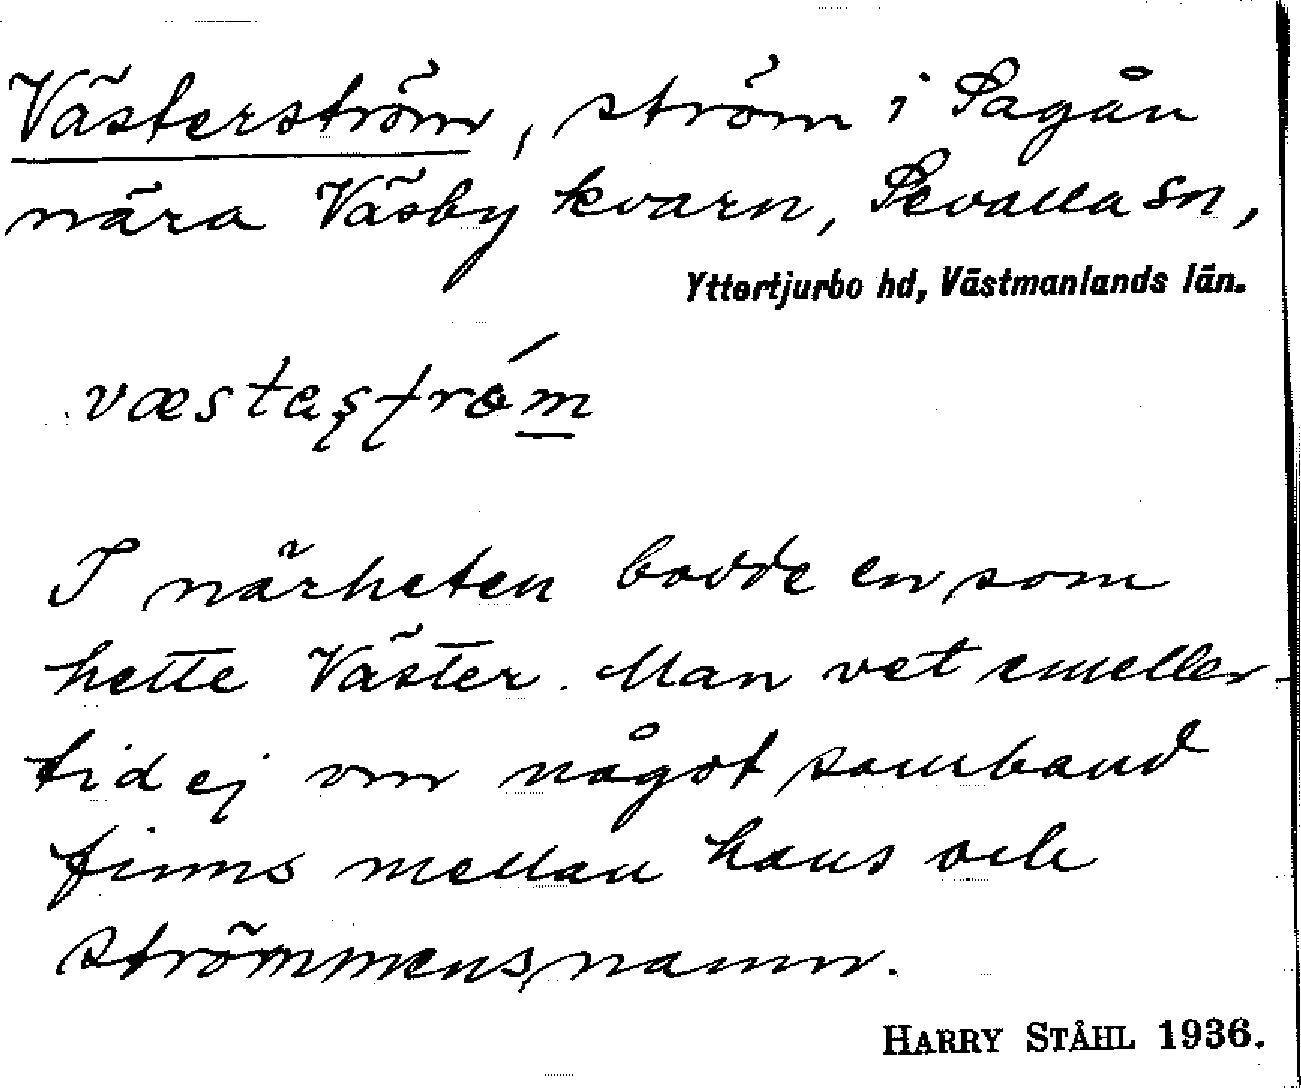 Västerström, ström i Sagån
nära Väsby kvarn, Sevalla sn,
Yttertjurbo hd, Västmanlands län.
væstaʂʈróm
I närheten bodde en som
hette Väster. Man vet emeller-
tid ej om något samband
finns mellan hans och
strömmens namn.
HARRY STÅHL 1936.